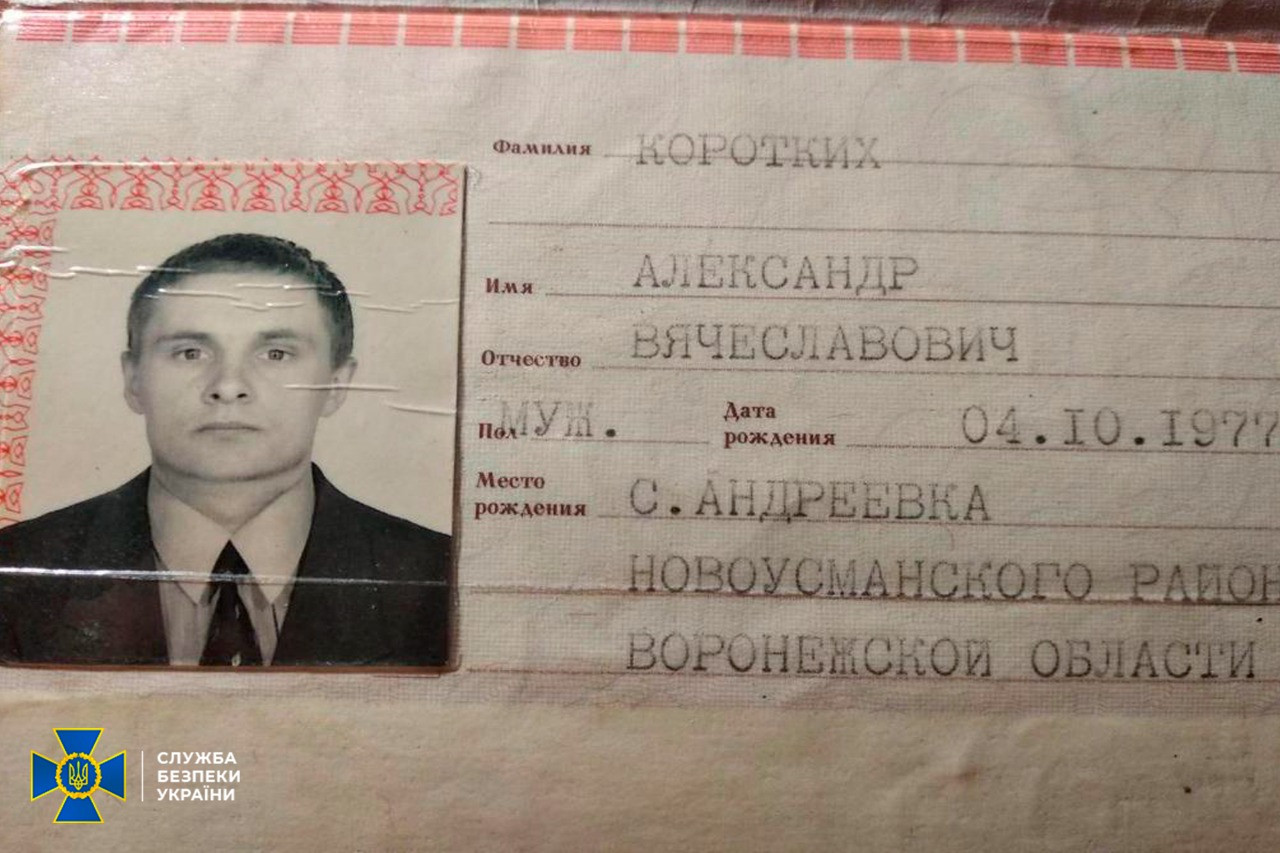 Фамилия КОРОТКИХ
Имя АЛЕКСАНДР
Отчество ВЯЧЕСЛАВОВИЧ
Пол МУЖ. Дата рождения 04.10.1977
Место рождения С.АНДРЕЕВКА
НОВОУСМАНСКОГО РАЙОН
ВОРОНЕЖСКОЙ ОБЛАСТИ
СЛУЖБА
БЕЗПЕКИ
УКРАЇНИ